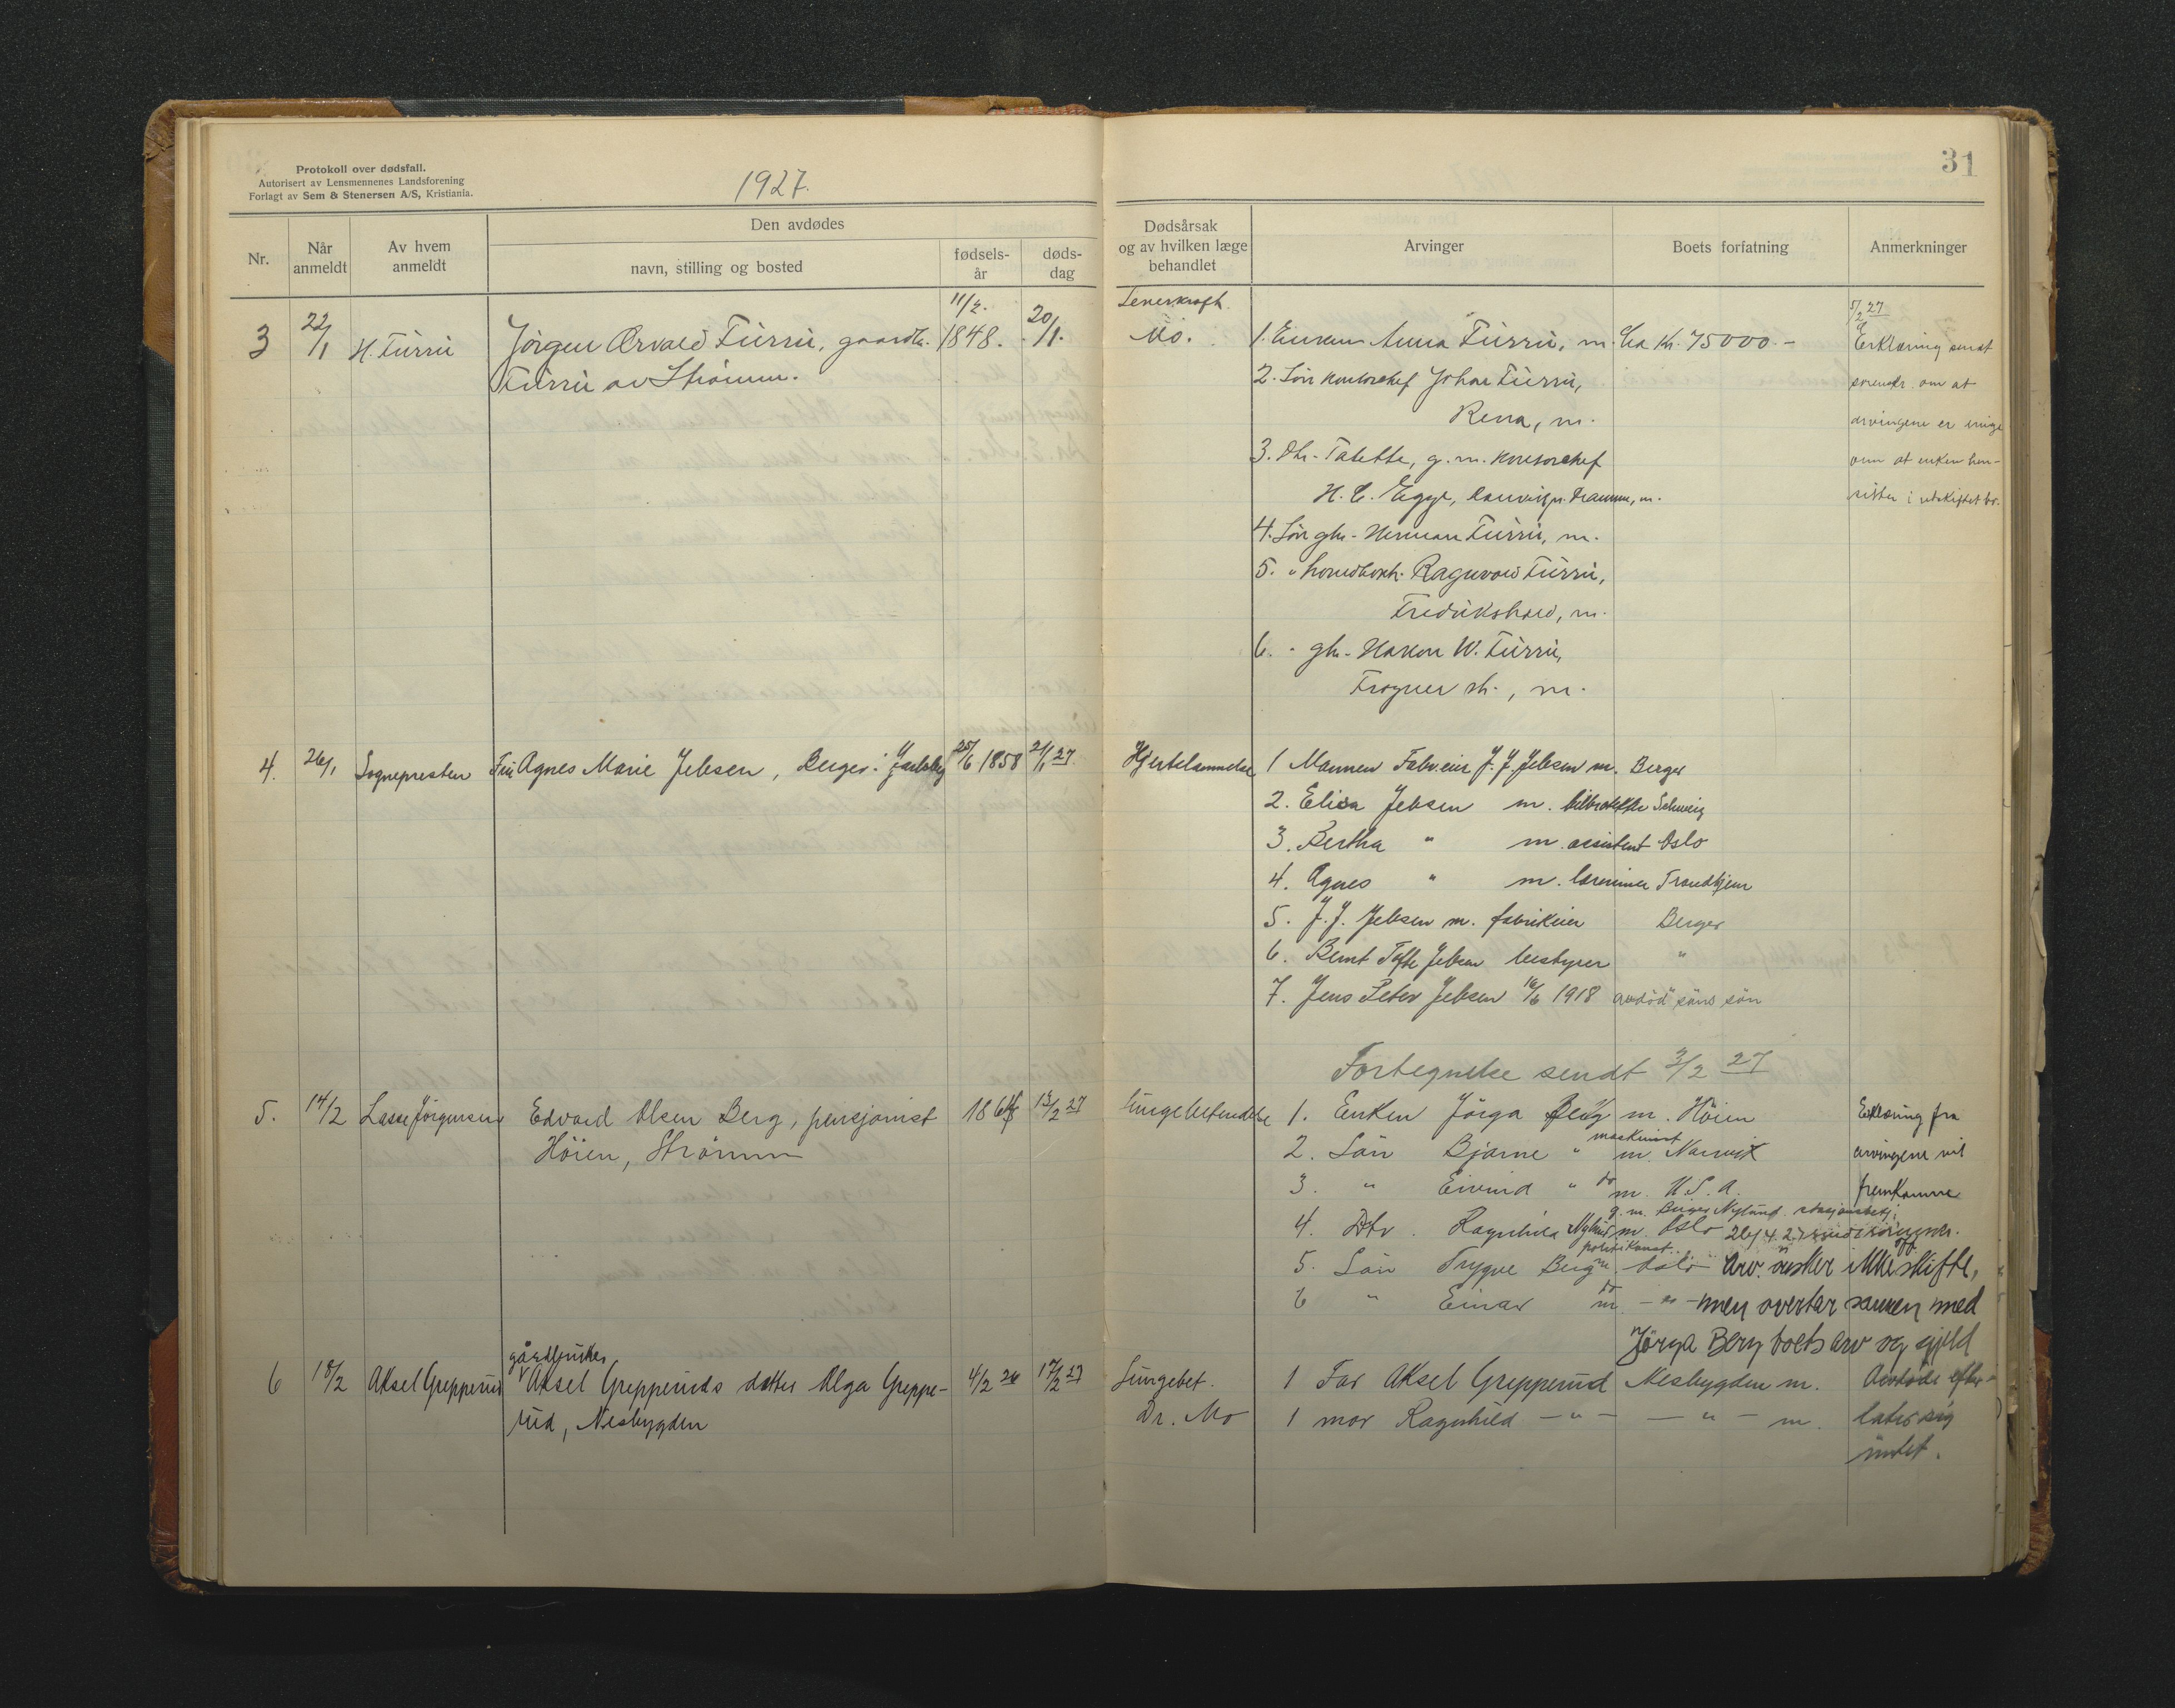 Protokoll over dødsfall.
Autorisert av Lensmennenes Landsforening
Forlagt av Sem & Stenersen A/S, Kristiania.
1927.
Nr.
Når anmeldt
Av hvem anmeldt
Den avdødes
navn, stilling og bosted
fødsels-år
døds-dag
3 22/1 H. Firing Jørgen Orvald Firing, gaardbr. 11/2. 1848. 20/1.
Firing av Strømm.
4. 26/1 Sognepresten Fru Agnes Marie Jebsen, Berger i Jarlsberg 25/6 1858 21/1 27
5. 14/2 Lasse Jörgensen Edvard Olsen Berg, pensjonist 13/2 27
Höien, Strömm
gårdbruker
6 18/2 Aksel Grepperud Aksel Grepperuds datter Olga Greppe- 4/2 26 17/2 27
rud, Nesbygden
31
Dødsårsak og av hvilken læge behandlet
Arvinger
Boets forfatning
Anmerkninger
Leverkræft.
Mo.
1. Enken Anna Firing, m. Ca Kr. 75000.-
2. Søn kontorchef Johan Firing,
Rena, m.
3. Dtr. Tabette, g. m. kontorchef
H. C. Egge, Dramm, m.
4. Søn gbr. Herman Firing, m.
5. " Ragnvald Firing,
Fredrikshald, m.
6. " gbr. Hakon W. Firing,
Frogner st., m.
5/2 27
Erklæring sendt
sorenskr. om at
arvingene er enige
om at enken hen-
sitter i uskiftet bo.
Hjertelammelse 1 Mannen Fabr.eier J. J. Jebsen m. Berger
2. Elisa Jebsen m. Schweiz
3. Bertha " m. assistent Oslo
4. Agnes " m. lærerinne Trondhjem
5. J. J. Jebsen m. fabrikeier Berger
6. Bernt Tofte Jebsen bestyrer "
7. Jens Peter Jebsen 16/6 1918 avdöd söns sön
Fortegnelse sendt 3/2 27
Lungebetendelse 1. Enken Jörga Berg m. Höien
2. Sön Bjarne " maskinist m. Narvik
3. " Eivind " do m. U. S. A.
g. m. Birger Nylund
4. Dtr. Ragnhild Nylund m. Oslo
5. Sön Trygve Berg m. Oslo
6 " Einar do m. - " -
Erklæring fra
arvingene vil
fremkomme
26/4 27
Arv. önsker ikke off. skifte,
men overtar sammen med
Jörga Berg boets arv og gjeld
Lungebet. 1 Far Aksel Grepperud Nesbygden m. Avdöde efter-
Dr. Mo 1 mor Ragnhild - " - - " - m. later sig
intet.